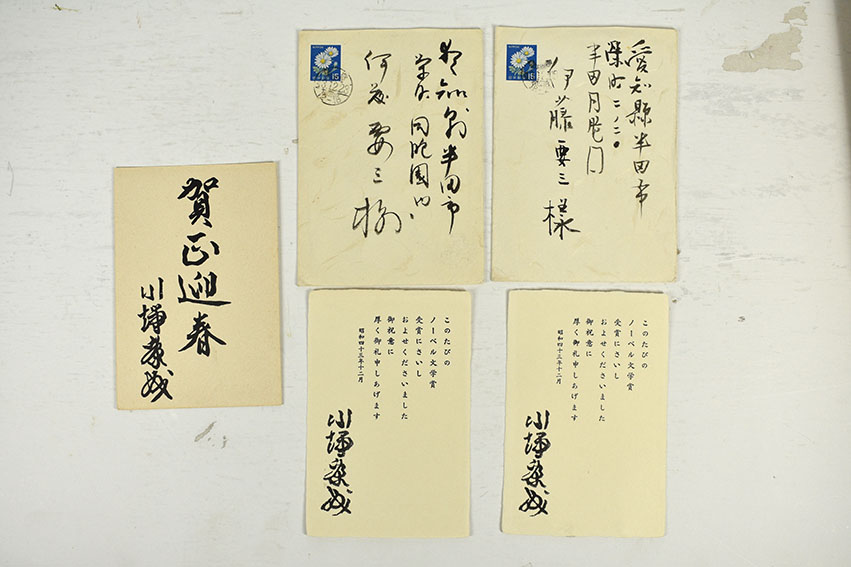 賀正迎春
川端康成
愛知縣半田市
同胞園内
伊藤要三様
15
愛知縣半田市
半田
伊藤要三様
15
このたびの
ノーベル文学賞
受賞にさいし
およせくださいました
御祝意に
厚く御礼申しあげます
昭和四十三年十二月
川端康成
このたびの
ノーベル文学賞
受賞にさいし
およせくださいました
御祝意に
厚く御礼申しあげます
昭和四十三年十二月
川端康成